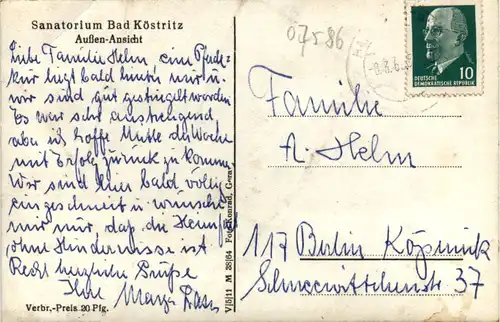 Sanatorium Bad Köstritz
Außen-Ansicht
Liebe Familie Helm, eine Pferde-
kur liegt bald hinter mir u.
wir sind gut gestriegelt worden
Es war sehr anstrengend
aber ich hoffe Mitte der Woche
mit Erfolg zurück zu kommen
Wir sind hier bald völlig
eingeschneit u wünsche
mir nur, daß die Heimfahrt
ohne Hindernisse ist
Recht herzliche Grüße
Ihre
Verbr.-Preis 20 Pfg.
V/5/11 M 38/64 Foto-Konrad, Gera
07586
DEUTSCHE
DEMOKRATISCHE REPUBLIK
10
Familie
A. Helm
117 Berlin Köpenick
37